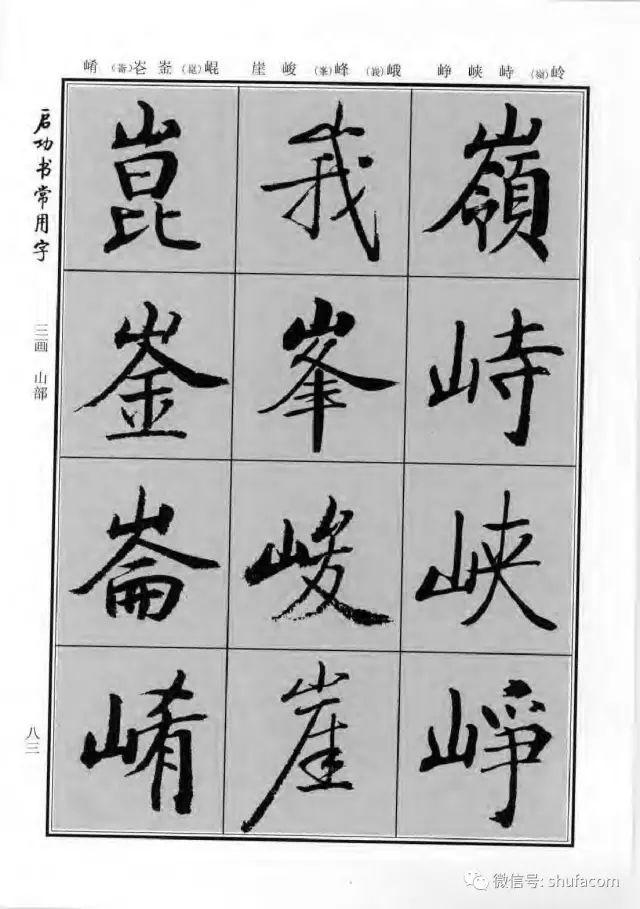 岭(嶺)峙 峡 峥 峨(峩)峰(峯)峻 崖 崐(崑)崟 (崙)崤
嶺
峙
峡
峥
峩
峯
峻
崖
崑
崟
崙
崤
启功书常用字
三画 山部
八三
微信号: shufacom